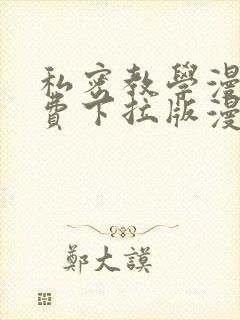 私密教學漫
費下拉版漫
鄭大謨